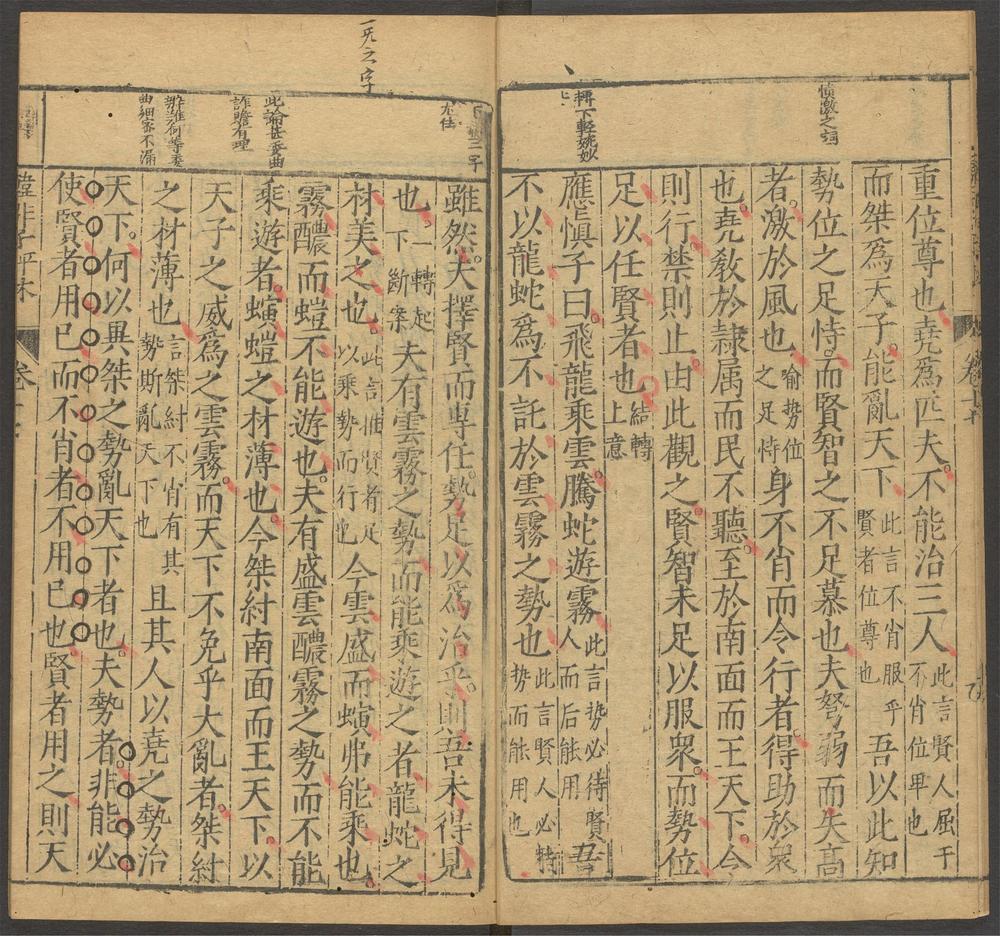 重位尊也堯爲匹夫不能治三人此言賢人屈于不肖位卑也
而桀爲天子能亂天下此言不肖服乎賢者位尊也吾以此知
勢位之足恃而賢智之不足慕也夫弩弱而矢高
者激於風也喻势位之足恃身不肖而令行者得助於衆
也堯敎於隷属而民不聽至於南面而王天下令
則行禁則止由此觀之賢智未足以服衆而勢位
足以任賢者也結轉上意
應慎子曰飛龍乘雲騰蛇遊霧此言势必待賢人而后能用吾
不以龍蛇爲不託於雲霧之势也此言賢人必恃势而能用也
憤激之詞
轉下輕婉妙
雖然夫擇賢而專任勢足以爲治乎則吾未得見
也一轉起下斷案夫有雲霧之勢而能乘遊之者龍蛇之
材美之也此言惟賢者足以乘勢而行也今雲盛而螾弗能乘也
霧醲而螘不能遊也夫有盛雲醲霧之勢而不能
乘遊者螾螘之材薄也今桀紂南面而王天下以
天子之威爲之雲霧而天下不免乎大亂者桀紂
之材薄也言桀紂不肖有其勢斯亂天下也且其人以堯之勢治
天下何以異桀之勢亂天下者也夫勢者非能必
使賢者用已而不肖者不用已也賢者用之則天
一旡之字
此論甚委曲
詐瞻有理
辨難何等委
曲細密不漏
韓非子平林
卷十七